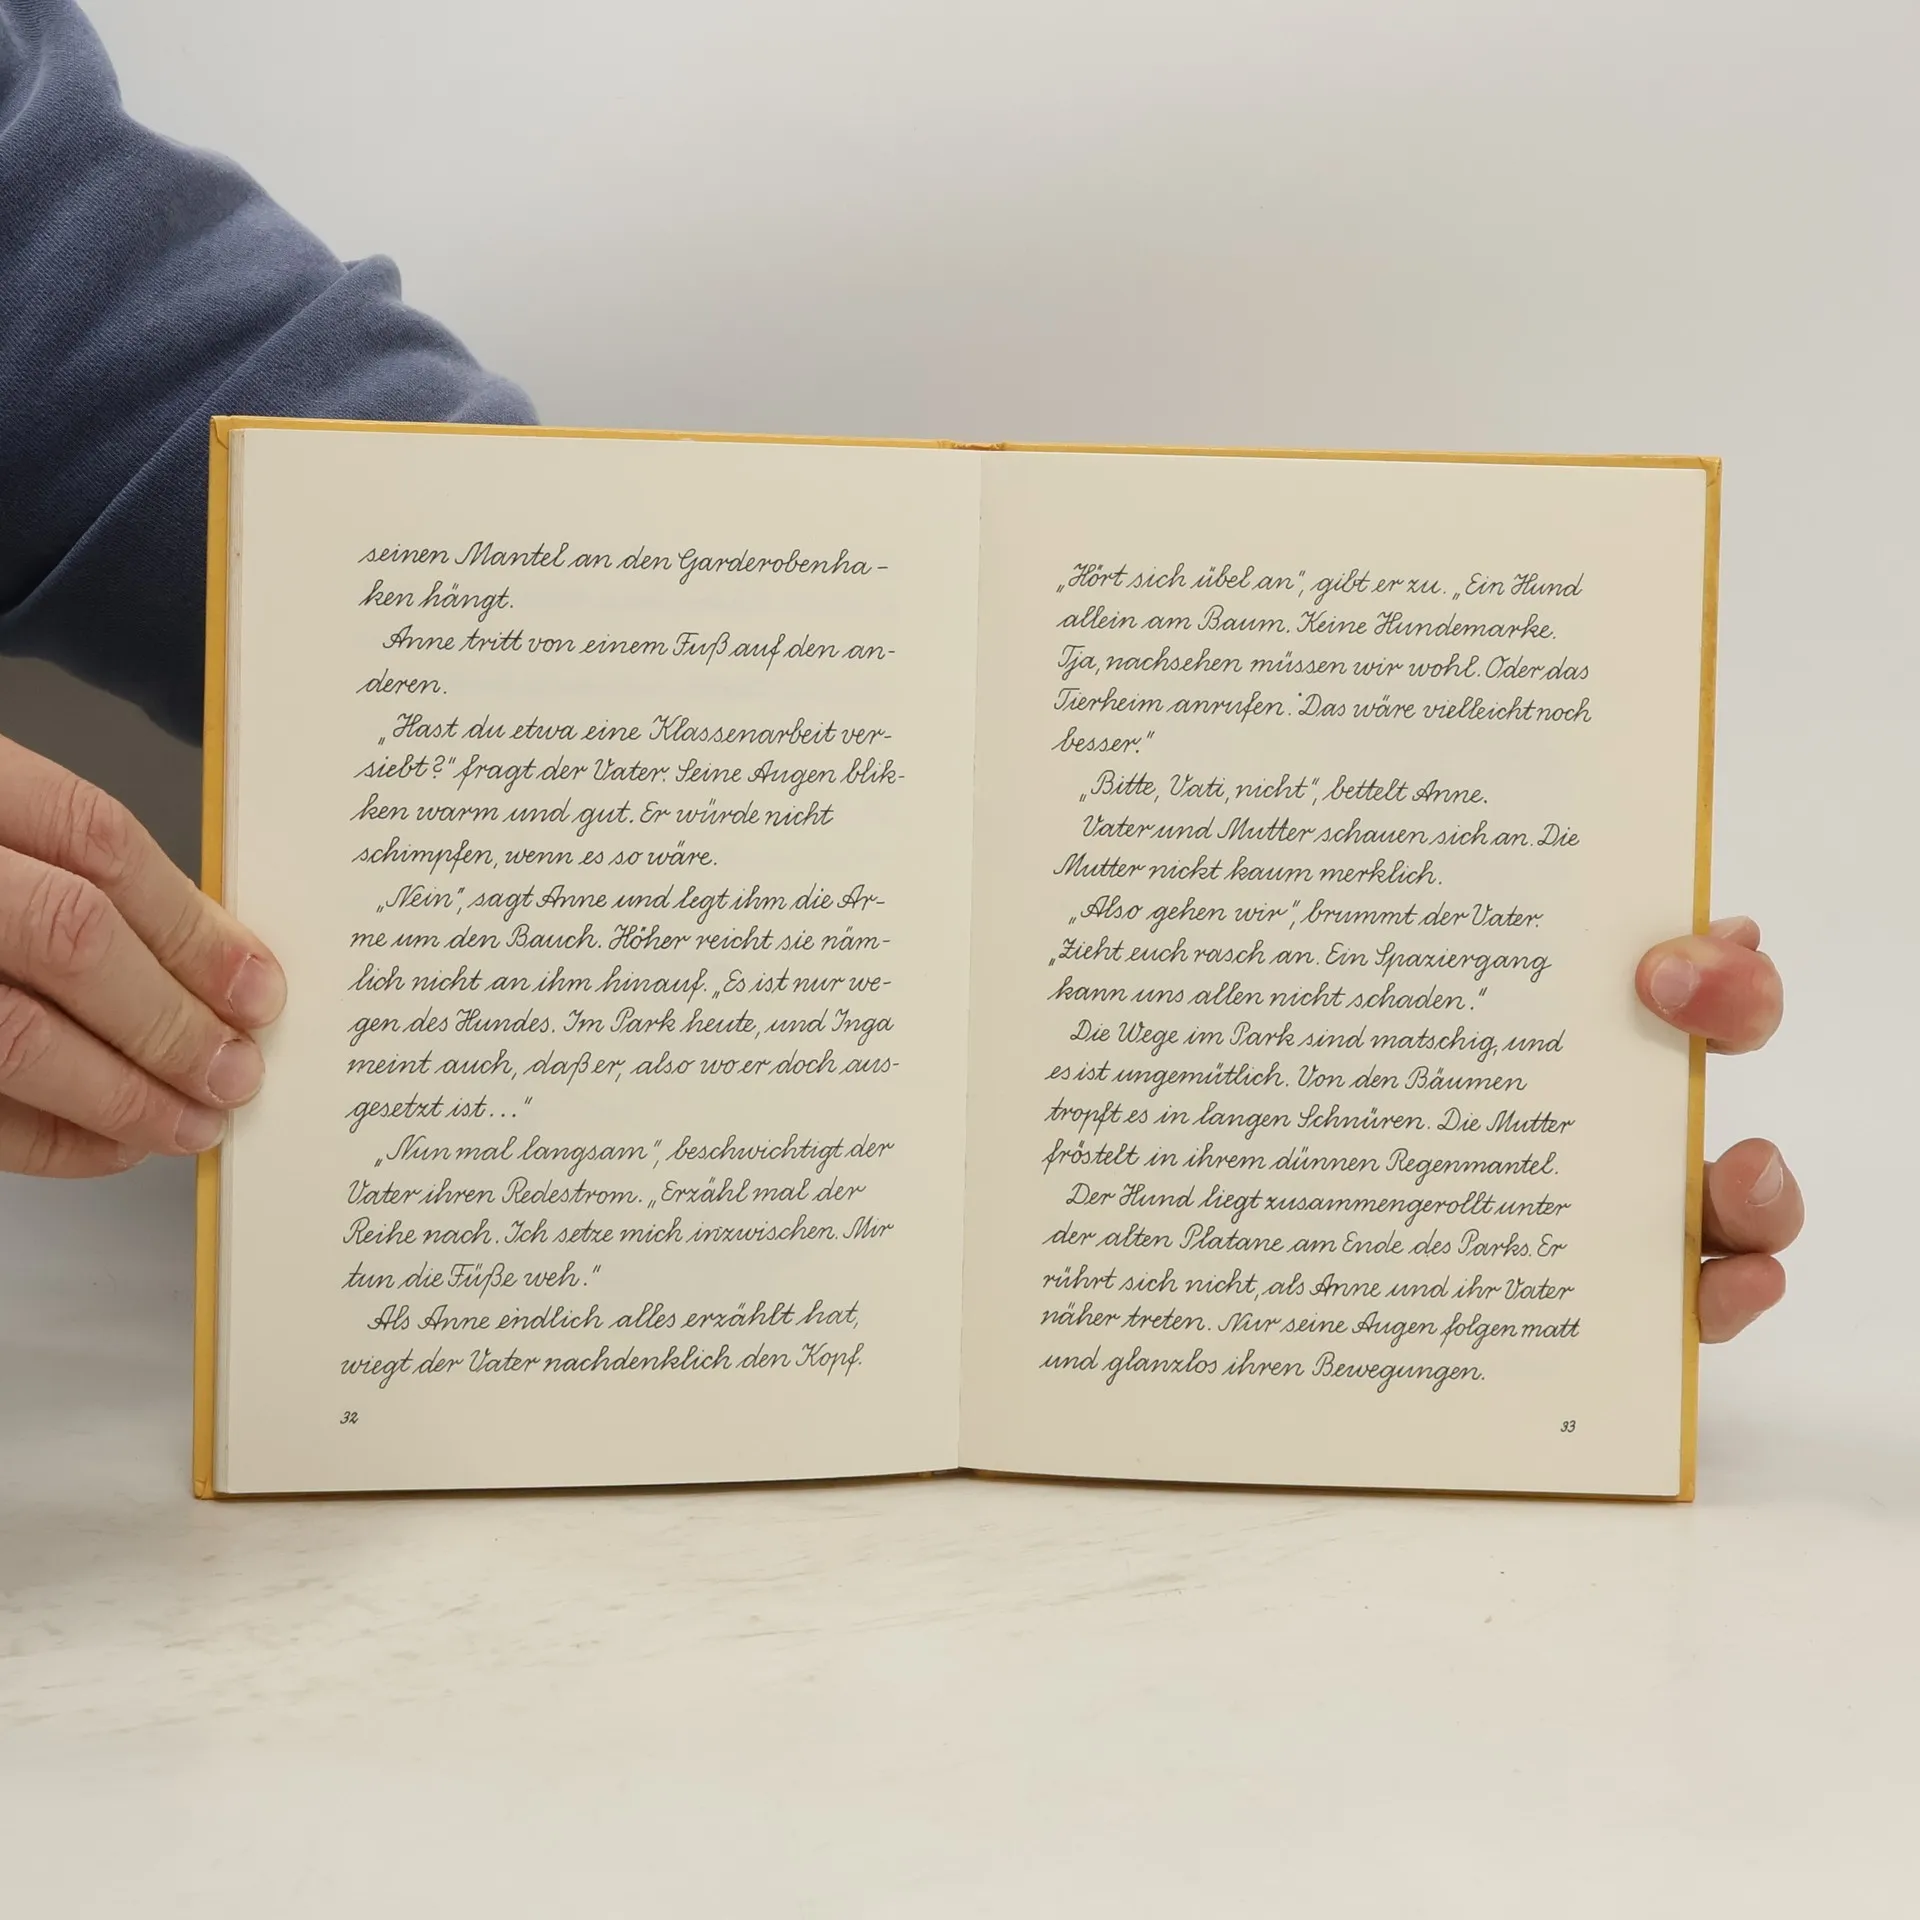 seinen Mantel an den Garderobenha-
ken hängt.
Anne tritt von einem Fuß auf den an-
deren.
„Hast du etwa eine Klassenarbeit ver-
siebt?" fragt der Vater. Seine Augen blik-
ken warm und gut. Er würde nicht
schimpfen, wenn es so wäre.
„Nein", sagt Anne und legt ihm die Ar-
me um den Bauch. Höher reicht sie näm-
lich nicht an ihm hinauf. „Es ist nur we-
gen des Hundes. Im Park heute, und Inga
meint auch, daß er, also wo er doch aus-
gesetzt ist..."
„Nun mal langsam", beschwichtigt der
Vater ihren Redestrom. „Erzähl mal der
Reihe nach. Ich setze mich inzwischen. Mir
tun die Füße weh."
Als Anne endlich alles erzählt hat,
wiegt der Vater nachdenklich den Kopf.
32
„Hört sich übel an", gibt er zu. „Ein Hund
allein am Baum. Keine Hundemarke.
Tja, nachsehen müssen wir wohl. Oder das
Tierheim anrufen. Das wäre vielleicht noch
besser."
„Bitte, Vati, nicht", bettelt Anne.
Vater und Mutter schauen sich an. Die
Mutter nickt kaum merklich.
„Also gehen wir", brummt der Vater.
„Zieht euch rasch an. Ein Spaziergang
kann uns allen nicht schaden."
Die Wege im Park sind matschig, und
es ist ungemütlich. Von den Bäumen
tropft es in langen Schnüren. Die Mutter
fröstelt in ihrem dünnen Regenmantel.
Der Hund liegt zusammengerollt unter
der alten Platane am Ende des Parks. Er
rührt sich nicht, als Anne und ihr Vater
näher treten. Nur seine Augen folgen matt
und glanzlos ihren Bewegungen.
33